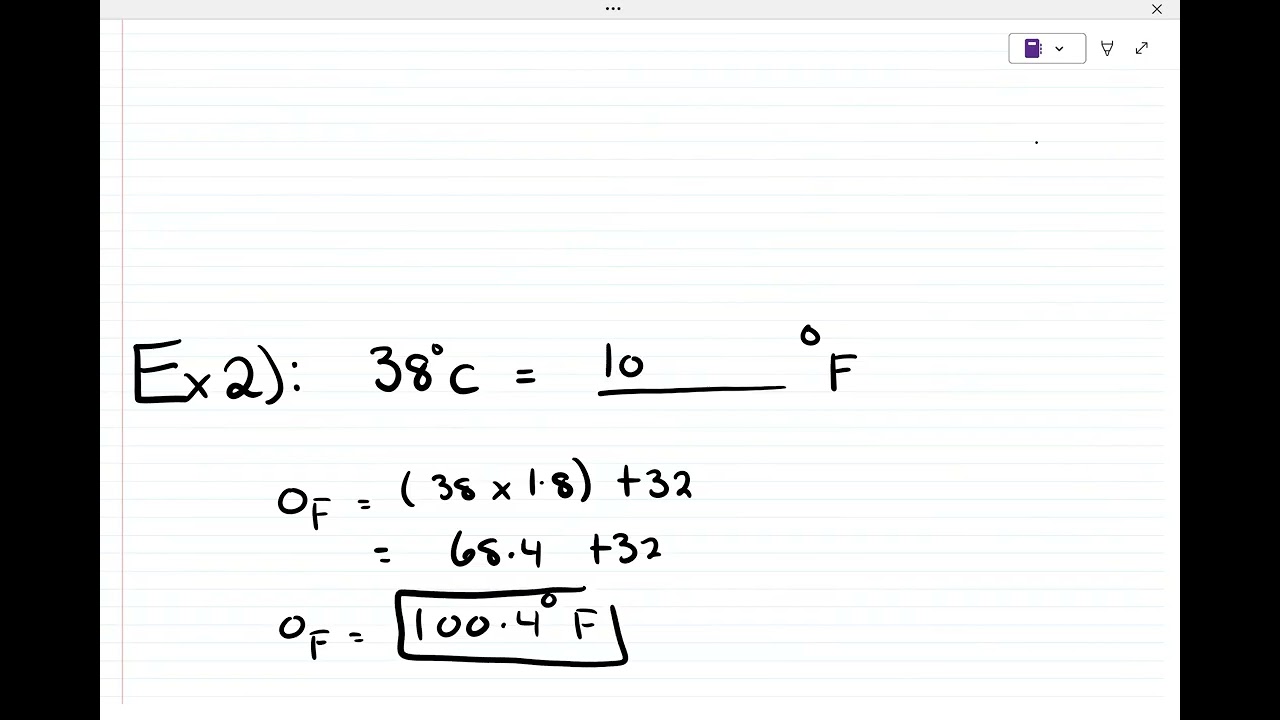 Ex 2): 38°C = 10 °F
°F = (38 x 1.8) +32
= 68.4 +32
°F = 100.4° F